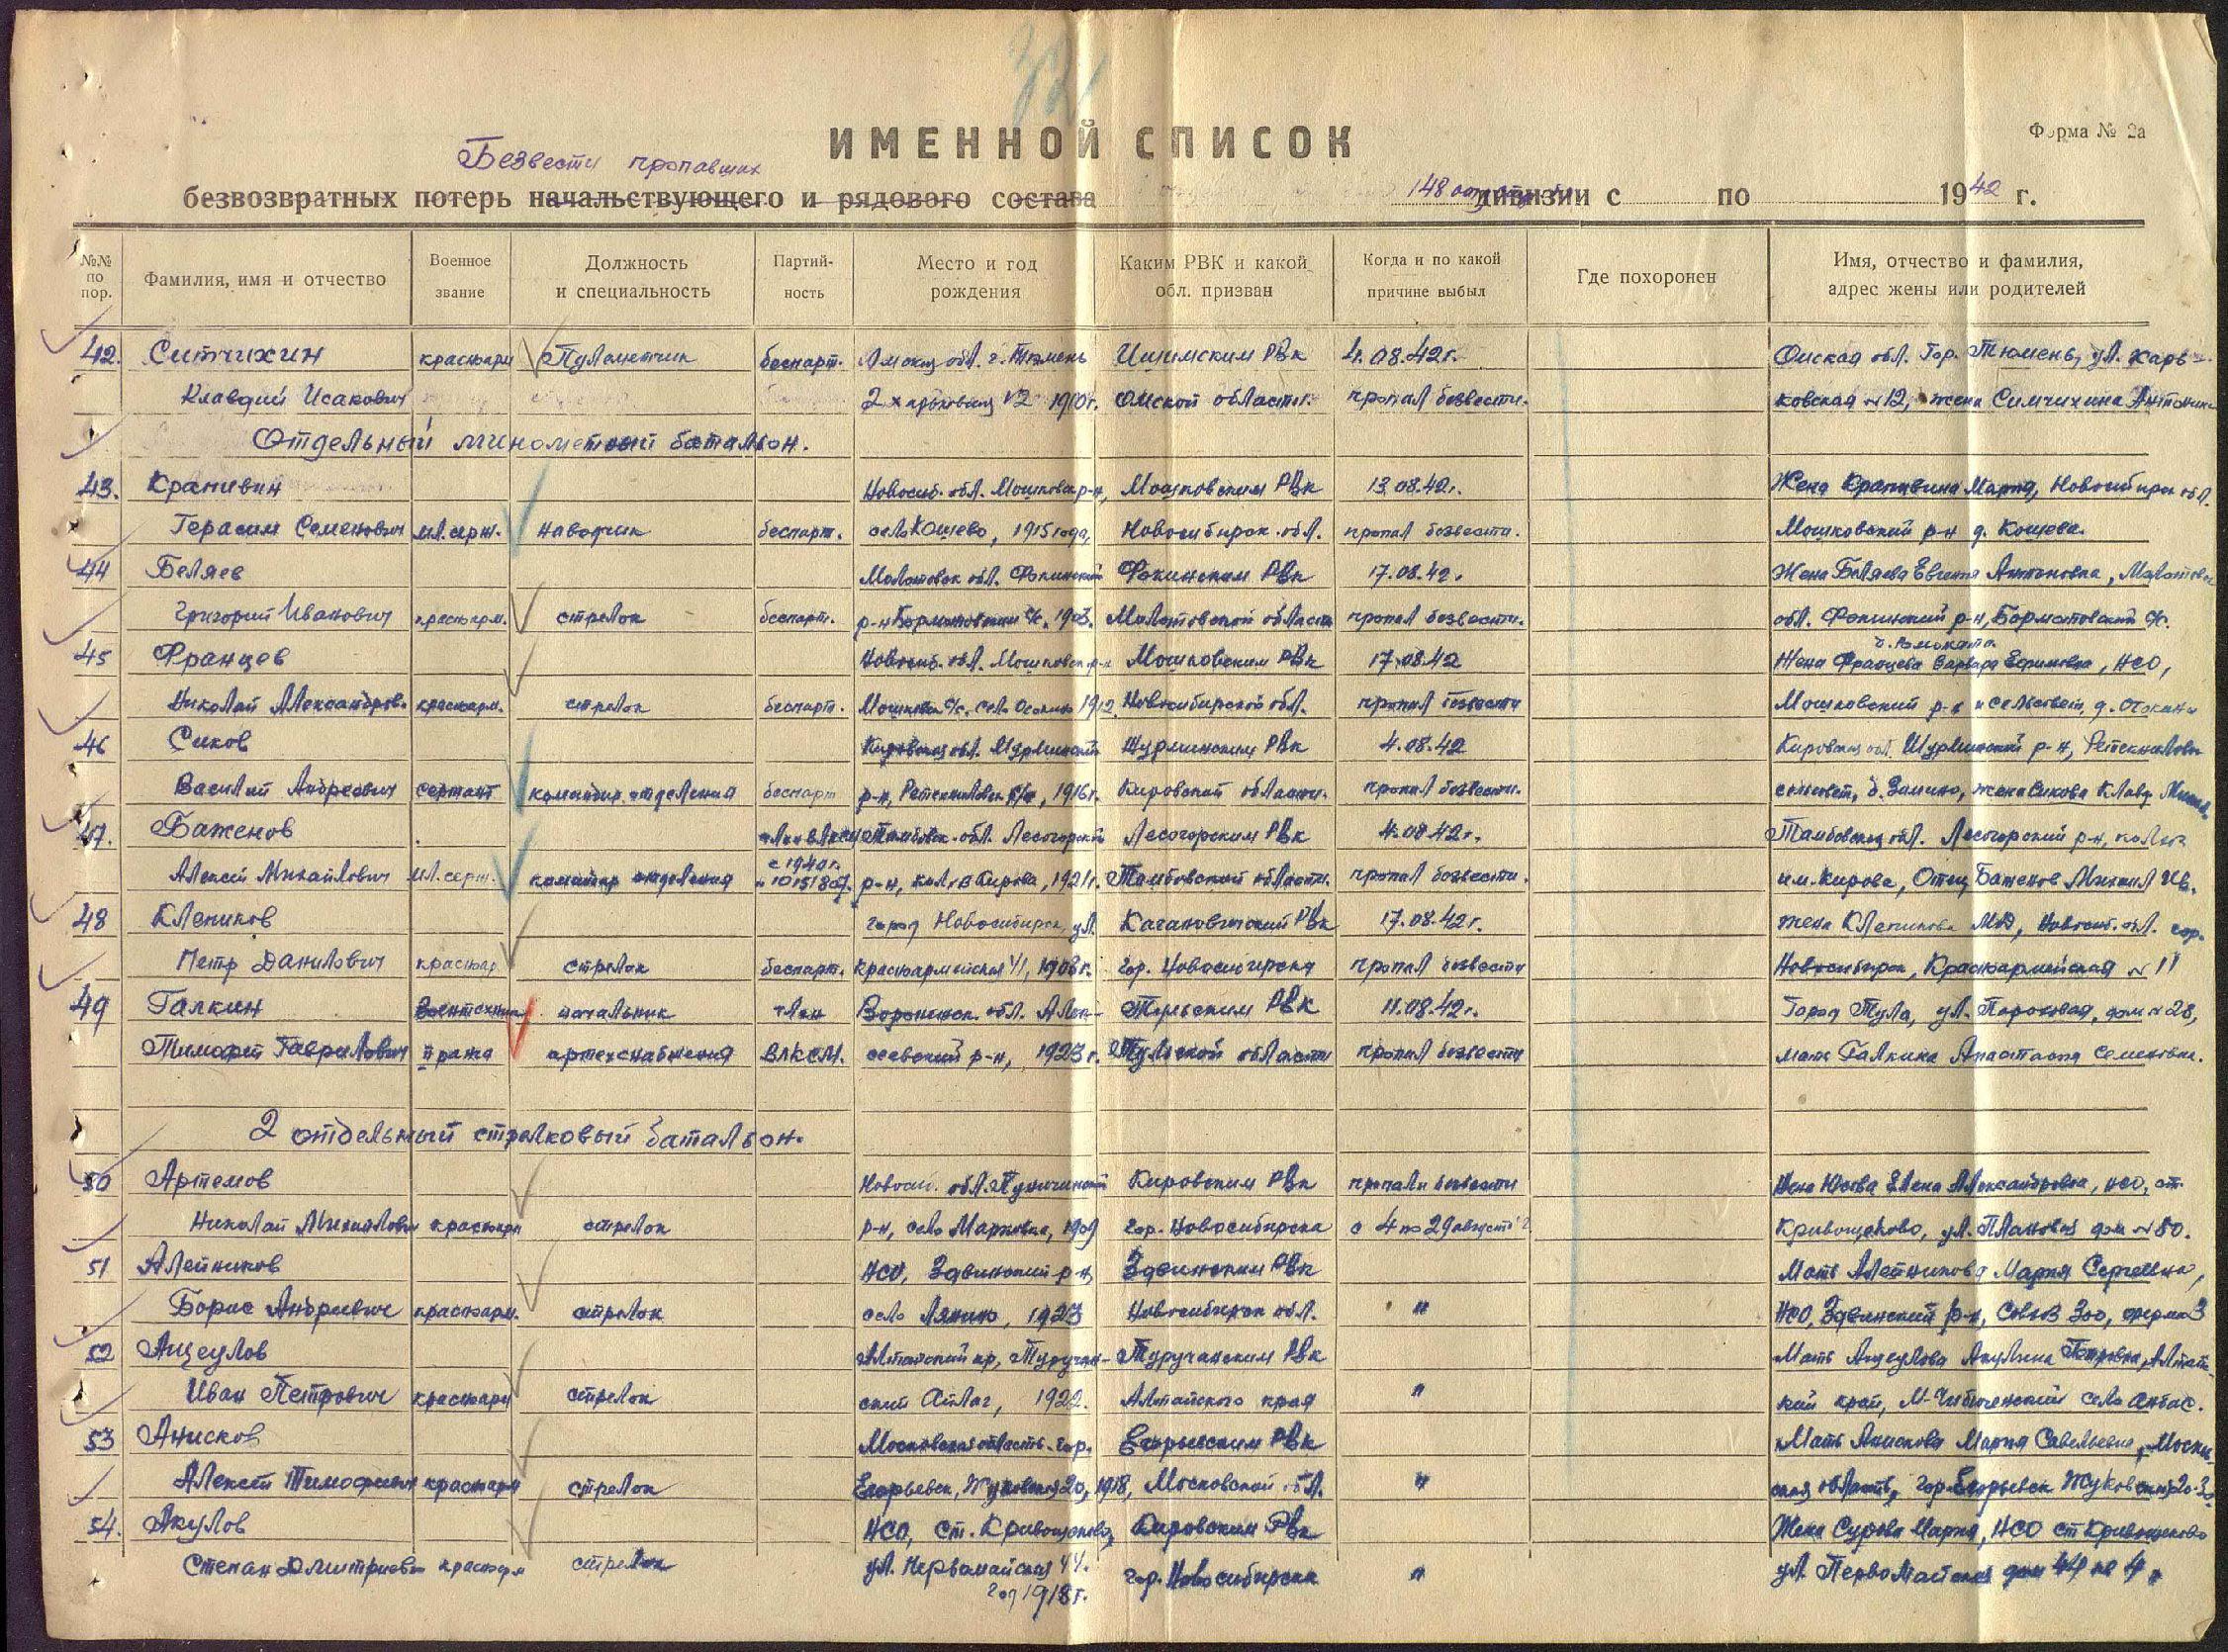 32
ИМЕННОЙ СПИСОК
Форма № 2а
Безвести пропавших
безвозвратных потерь начальствующего и рядового состава 148 дивизии с по 1942 г.
№№ по пор. Фамилия, имя и отчество Военное звание Должность и специальность Партийность Место и год рождения Каким РВК и какой обл. призван Когда и по какой причине выбыл Где похоронен Имя, отчество и фамилия, адрес жены или родителей
42. Ситчихин красноарм Пулеметчик беспарт. Омская обл. г. Тюмень Ишимским РВК 4.08.42г. Омская обл. Гор. Тюмень, ул. Харь-
Клавдий Исакович 2 харьковская 12 1910г. Омской области. пропал безвести. ковская №12, жена Ситчихина Антонина
Отдельный минометный батальон.
43. Крапивин Новосиб. обл. Мошковск р-н, Мошковским РВК 13.08.42г. Жена Крапивина Мария, Новосибирск обл.
Герасим Семенович мл. серж. наводчик беспарт. село Кошево, 1915 года, Новосибирск. обл. пропал безвести. Мошковский р-н д. Кошева.
44 Беляев Молотовск обл. Фокинский Фокинским РВК 17.08.42. Жена Беляева Евгения Антоновна, Молотовск
Григорий Иванович красноарм. стрелок беспарт. р-н Бормотовский с/с. 1903. Молотовской области пропал безвести. обл. Фокинский р-н, Бормотовский с/с.
45 Францев Новосиб. обл. Мошковск р-н Мошковским РВК 17.08.42 Жена Францева Варвара Ефимовна, НСО,
Николай Александров. красноарм. стрелок беспарт. Мошковск с/с. село 1912 Новосибирской обл. пропал безвести Мошковский р-н сельсовет, д.
46 Сиков Кировская обл. Шурминский Шурминским РВК 4.08.42 Кировская обл. Шурминский р-н,
Василий Андреевич сержант командир отделения беспарт р-н, с/с, 1916г. Кировской области. пропал безвести. сельсовет, д. Замино, жена Сикова Клавд.
47. Баженов член ВЛКСМ Тамбовск. обл. Лесогорский Лесогорским РВК 4.08.42г. Тамбовская обл. Лесогорский р-н, колхоз
Алексей Михайлович мл. серж. командир отделения с 1940г. р-н, кол-в Кирова, 1921г. Тамбовской области. пропал безвести. им. Кирова, Отец Баженов Михаил Ив.
48 Клепиков город Новосибирск, ул. Кагановичский РВК 17.08.42г. жена Клепикова М.Д, Новосиб. обл. гор.
Петр Данилович красноар стрелок беспарт. Красноармейская 11, 1908г. гор. Новосибирска пропал безвести Новосибирск, Красноармейская №11
49 Галкин Воентехник начальник член Воронежск. обл. Алек- Тульским РВК 11.08.42г. Город Тула, ул. Пороховая, дом №28,
Тимофей Гаврилович II ранга артснабжения ВЛКСМ. сеевский р-н, 1923г. Тульской области пропал безвести мать Галкина Анастасия Семеновна.
2 отдельный стрелковый батальон.
50 Артемов Новосиб. обл. р-н Кировским РВК пропали безвести Жена Елена Александровна, НСО, ст.
Николай Михайлович красноарм стрелок р-н, село Марковка, 1909 гор. Новосибирска с 4 по 29 августа Кривощеково, ул. Плановая дом №80.
51 Алейников НСО, Здвинский р-н, Здвинским РВК Мать Алейникова Мария Сергеевна,
Борис Андреевич красноарм. стрелок село Лянино, 1923 Новосибирск обл. " НСО, Здвинский р-н, Совхоз 300, ферма 3
52 Ащеулов Алтайский кр, Туручак- Туручакским РВК Мать Ащеулова Акулина Петровна, Алтай-
Иван Петрович красноарм стрелок ский Аймаг, 1922. Алтайского края " кий край,
53 Анисков Московская область. гор. Егорьевским РВК Мать Анискова Мария Савельевна, Москов-
Алексей Тимофеевич красноарм стрелок Егорьевск, Жуковская 20, 1918, Московской обл. " ская область, гор. Егорьевск Жуковская 20-30
54. Акулов НСО, ст. Кривощеково, Кировским РВК Жена Сурова Мария, НСО ст Кривощеково
Степан Дмитриевич красноарм стрелок ул. Первомайская 44. гор. Новосибирска " ул. Первомайская дом 44 кв 4.
год 1918г.